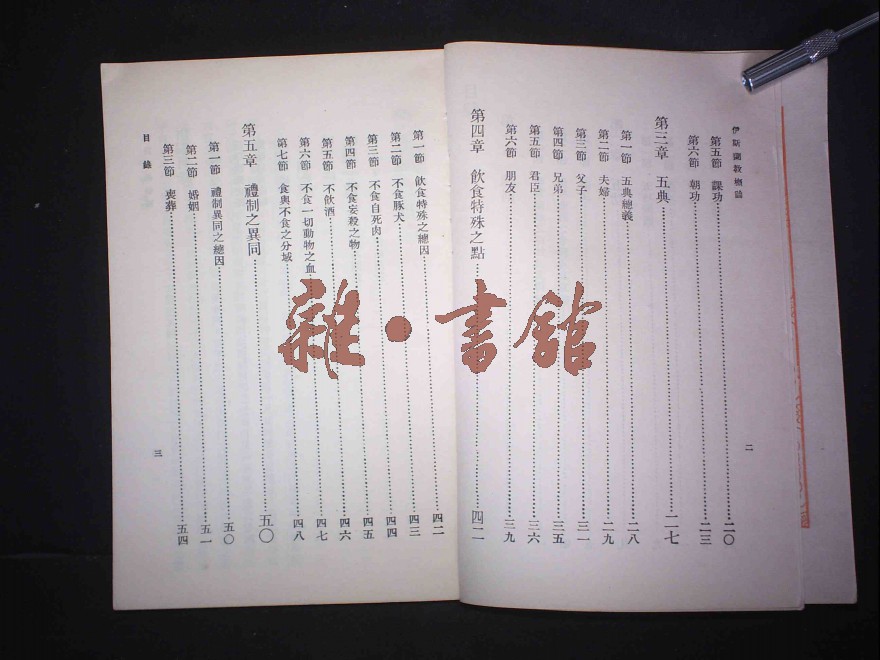 伊斯蘭教概論
二
第五節 課功 二〇
第六節 朝功 二三
第三章 五典 二七
第一節 五典總義 二八
第二節 夫婦 二九
第三節 父子 三一
第四節 兄弟 三五
第五節 君臣 三六
第六節 朋友 三九
第四章 飲食特殊之點 四二
第一節 飲食特殊之總因 四二
第二節 不食豚犬 四三
第三節 不食自死肉 四四
第四節 不食妄殺之物 四五
第五節 不飲酒 四六
第六節 不食一切動物之血 四七
第七節 食與不食之分域 四八
第五章 禮制之異同 五〇
第一節 禮制異同之總因 五〇
第二節 婚姻 五一
第三節 喪葬 五四
目錄
三
雜·書館